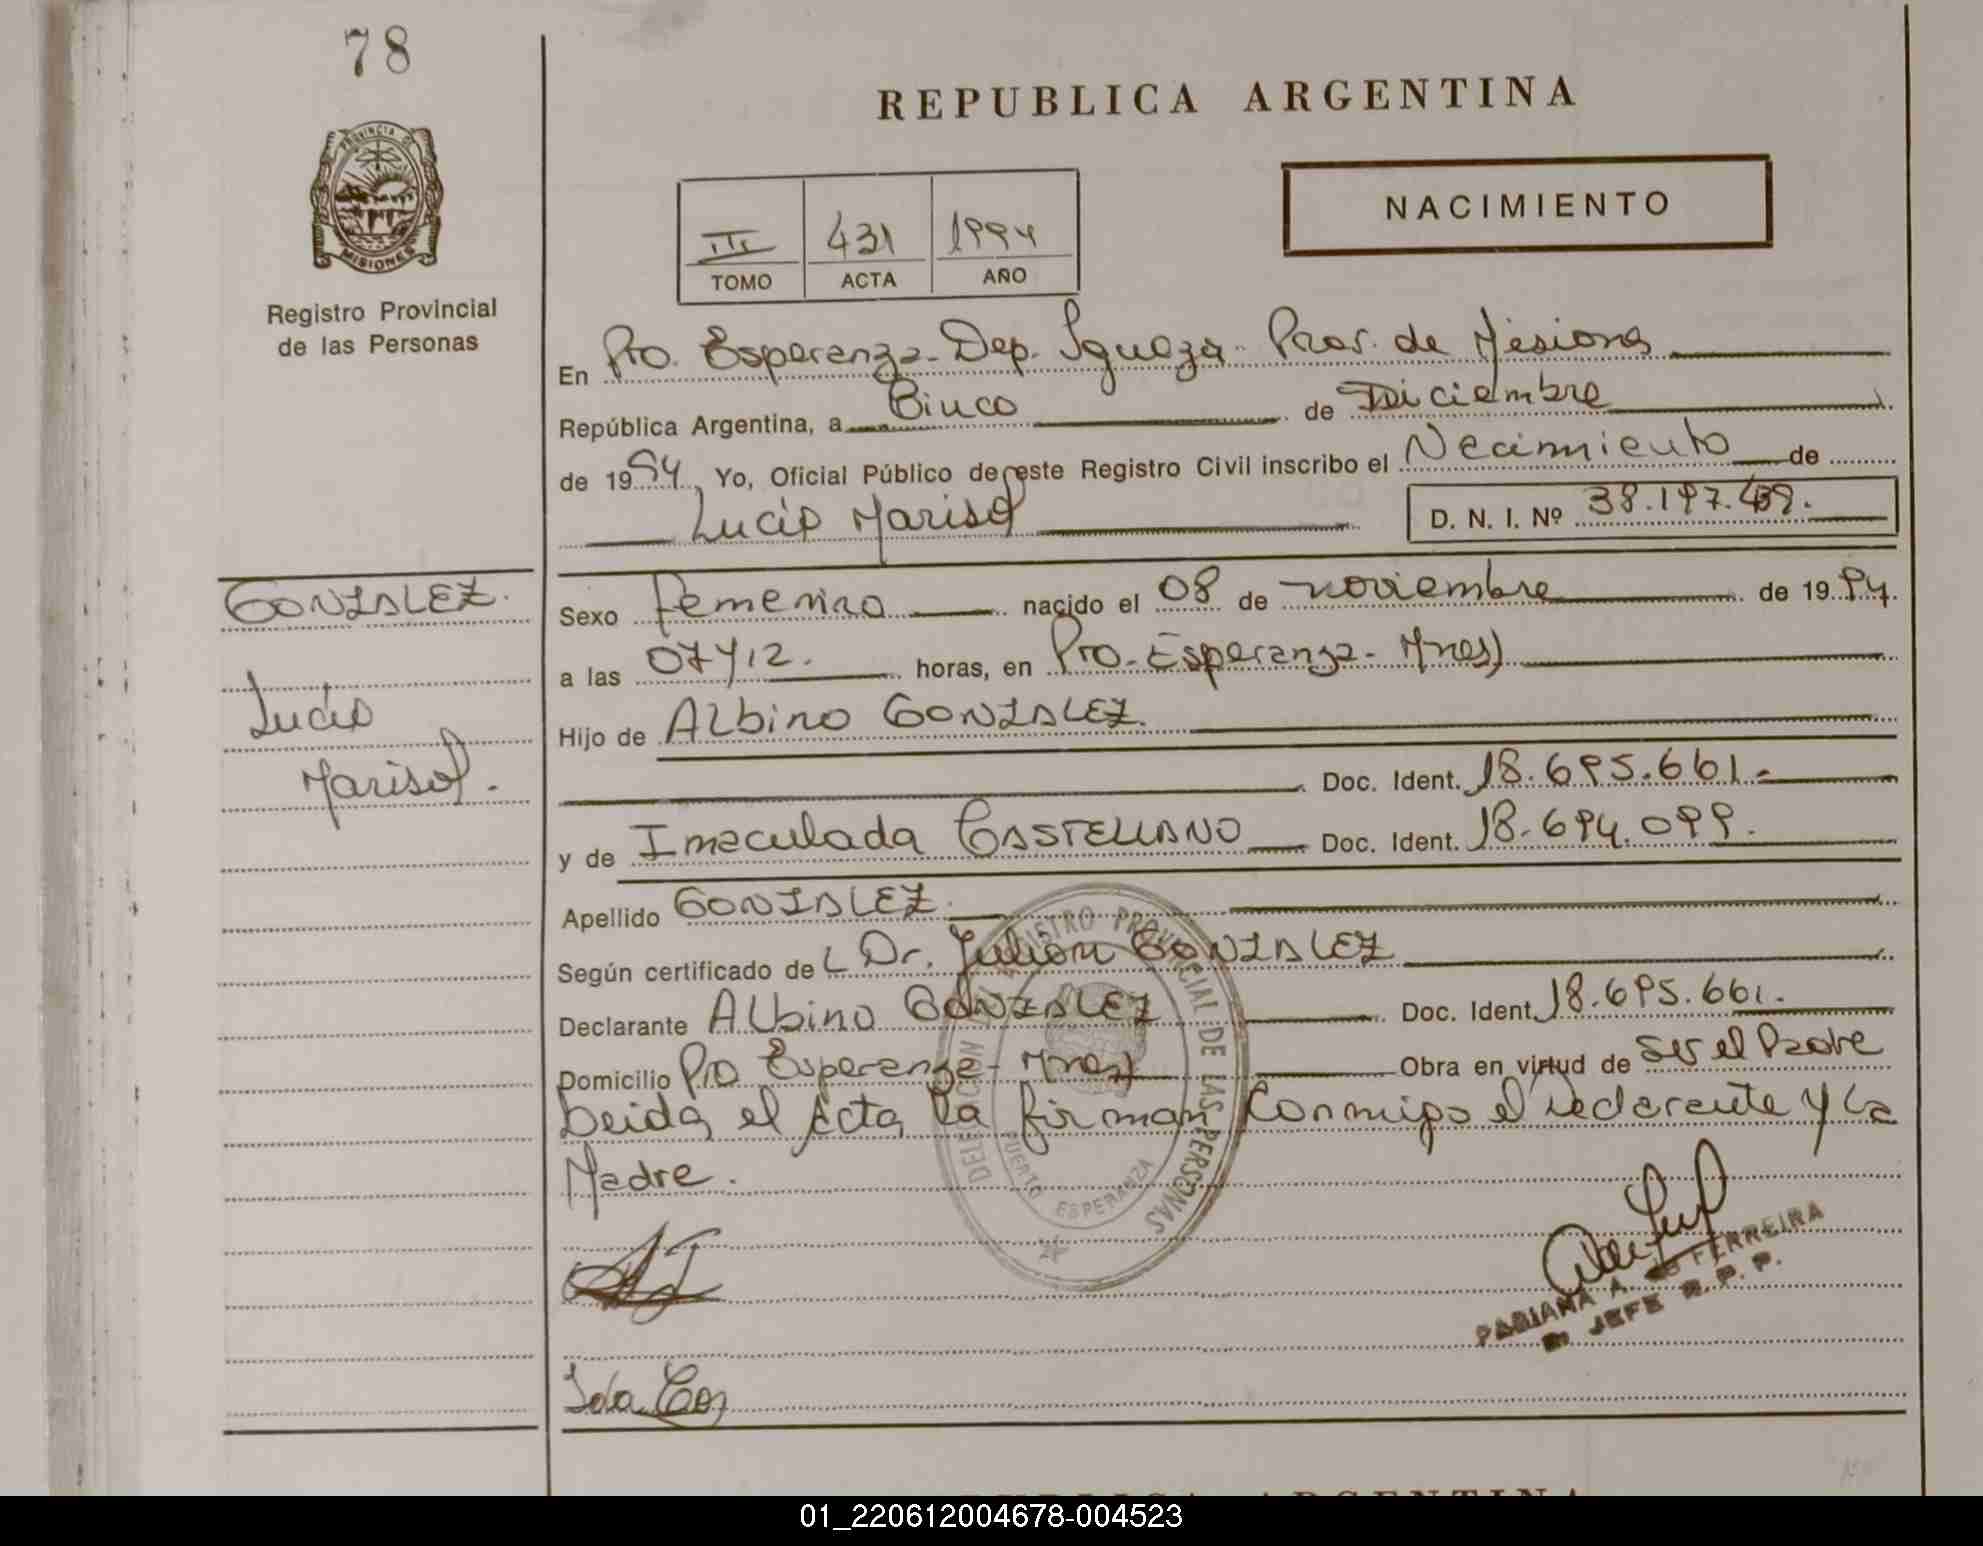 78
PROVINCIA DE
MISIONES
Registro Provincial
de las Personas
REPUBLICA ARGENTINA
NACIMIENTO
III 431 1994
TOMO ACTA AÑO
En Pto. Esperanza - Dep. Iguazú - Prov. de Misiones
República Argentina, a Cinco de Diciembre
de 1994, Yo, Oficial Público de este Registro Civil inscribo el Nacimiento de
Lucia Marisol D. N. I. Nº 38.197.439.
GONZALEZ.
Lucia
Marisol.
Sexo femenino nacido el 08 de noviembre de 1994.
a las 07 y 12. horas, en Pto. Esperanza - Mnes)
Hijo de Albino GONZALEZ.
Doc. Ident. 18.695.661.-
y de Imaculada CASTELLANO Doc. Ident. 18.694.099.
Apellido GONZALEZ.
Según certificado de L Dr. Julián GONZALEZ
Declarante Albino GONZALEZ Doc. Ident. 18.695.661.
Domicilio Pto Esperanza - Mnes) Obra en virtud de ser el Padre
Leida el Acta la firman conmigo el declarante y la
Madre.
DELEGACION REGISTRO PROVINCIAL DE LAS PERSONAS
PUERTO ESPERANZA
FABIANA A. DE FERREIRA
JEFE R. P. P.
REPUBLICA ARGENTINA
01_220612004678-004523